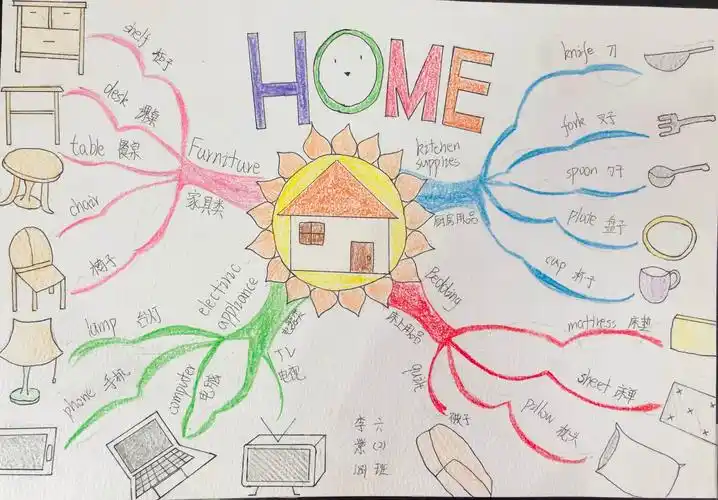 HOME
shelf 柜子
desk 课桌
table 餐桌
chair 椅子
Furniture
家具类
kitchen
supplies
厨房用品
knife 刀
fork 叉子
spoon 勺子
plate 盘子
cup 杯子
electronic
appliance
lamp 台灯
phone 手机
computer
电脑
TV
电视
Bedding
床上用品
mattress 床垫
sheet 床单
pillow 枕头
被子
李 六
(2)
班